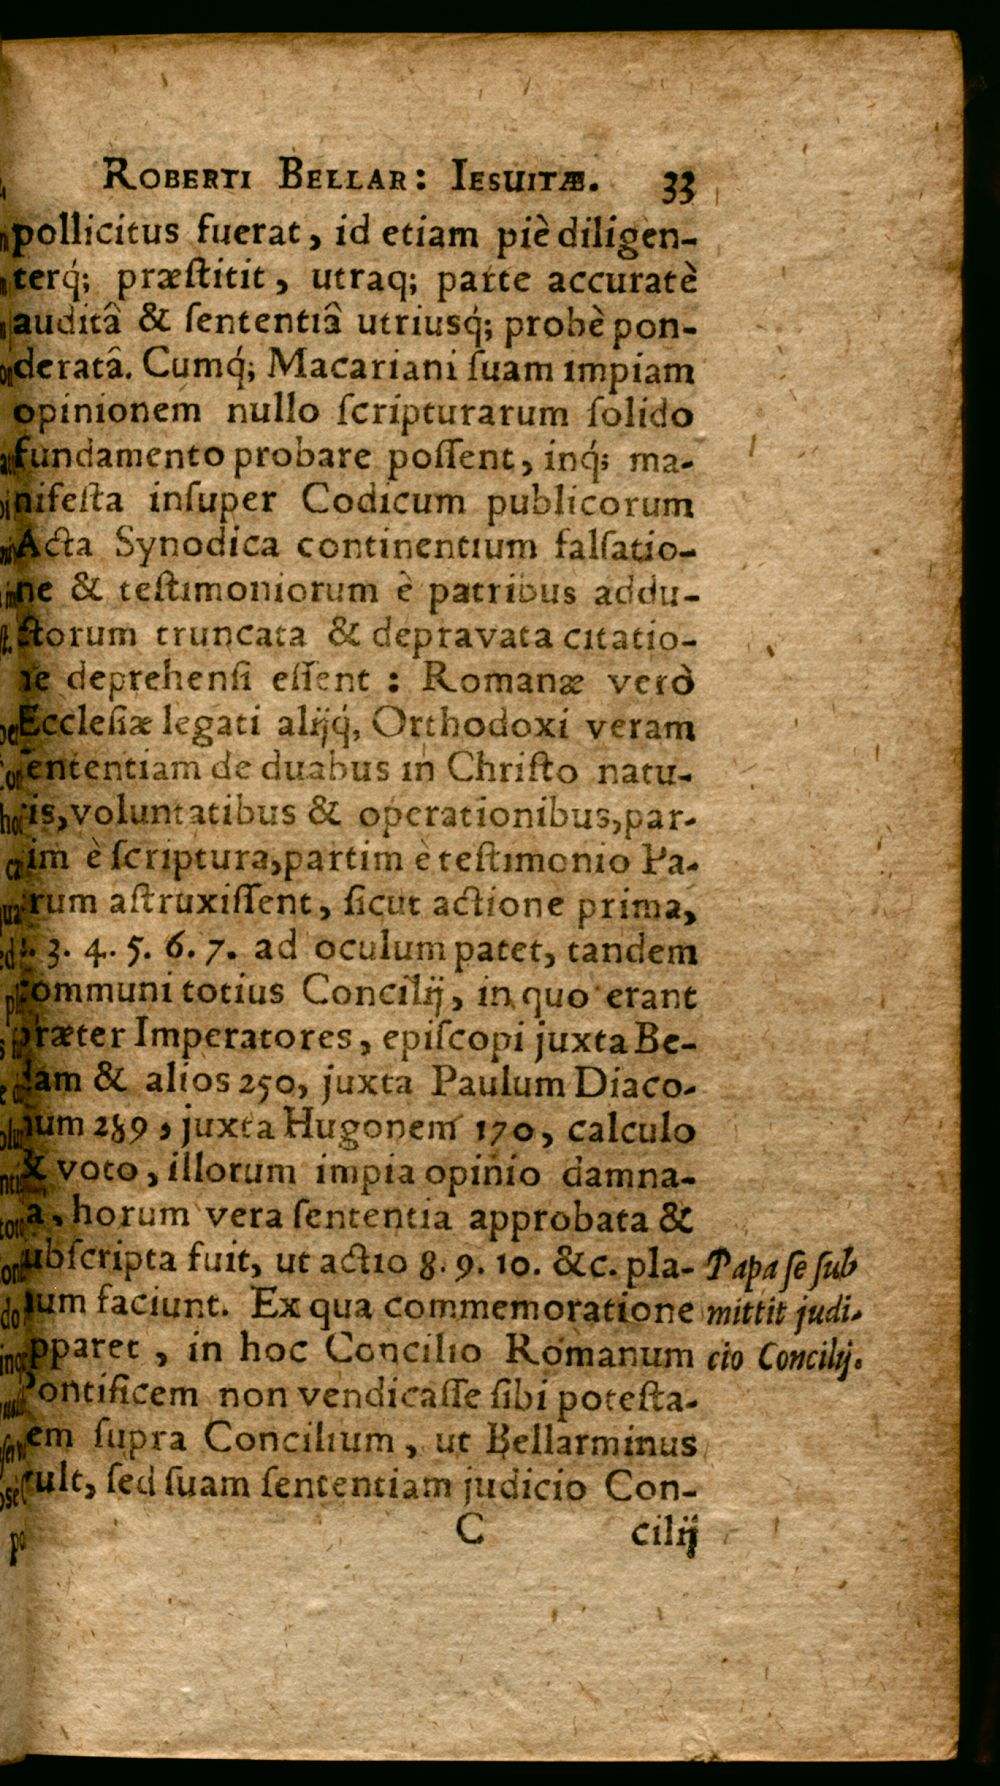 ROBERTI BELLAR: IESUITÆ. 33
pollicitus fuerat, id etiam piè diligen-
terq́; præstitit, utraq; parte accuratè
auditâ & sententiâ utriusq́; probè pon-
deratâ. Cumq́; Macariani suam impiam
opinionem nullo scripturarum solido
fundamento probare possent, inq́; ma-
nifesta insuper Codicum publicorum
Acta Synodica continentium falsatio-
ne & testimoniorum è patribus addu-
ctorum truncata & depravata citatio-
ne deprehensi essent : Romanæ verò
Ecclesiæ legati alijq́, Orthodoxi veram
sententiam de duabus in Christo natu-
ris, voluntatibus & operationibus, par-
tim è scriptura, partim è testimonio Pa-
trum astruxissent, sicut actione prima,
3. 4. 5. 6. 7. ad oculum patet, tandem
communi totius Concilij, in quo erant
præter Imperatores, episcopi juxta Be-
dam & alios 250, juxta Paulum Diaco-
num 289, juxta Hugonem 170, calculo
& voto, illorum impia opinio damna-
ta, horum vera sententia approbata &
subscripta fuit, ut actio 8. 9. 10. &c. pla-
num faciunt. Ex qua commemoratione
apparet, in hoc Concilio Romanum
Pontificem non vendicasse sibi potesta-
tem supra Concilium, ut Bellarminus
vult, sed suam sententiam judicio Con-
C cilij
Papa se sub
mittit judi-
cio Concilij.